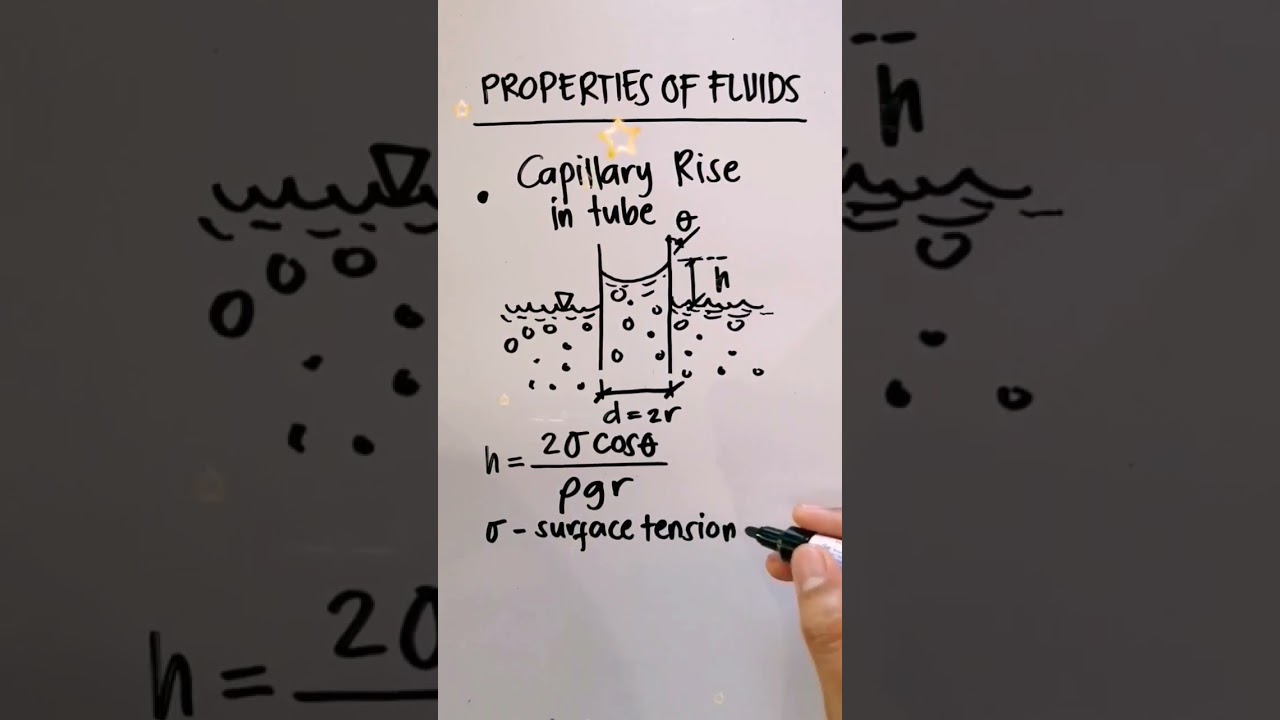 PROPERTIES OF FLUIDS
• Capillary Rise
in tube
θ
h
d = 2r
h = 2σ cosθ
ρgr
σ - surface tension
h
h = 2σ